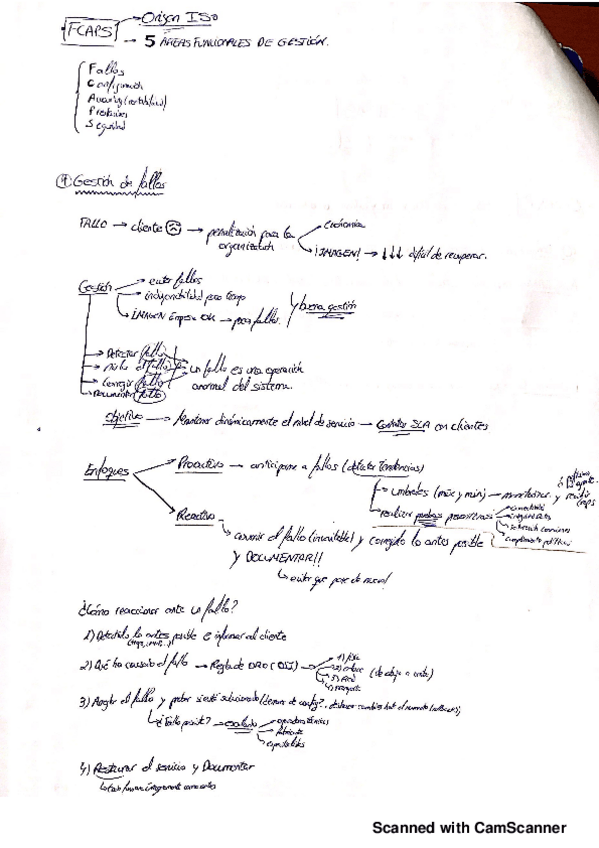 FCAPS → Origen ISO
→ 5 ÁREAS FUNCIONALES DE GESTIÓN.
Fallos
Configuración
Accounting (contabilidad)
Prestaciones
Seguridad
Gestión de fallos
FALLO → cliente → penalización para la organización
economía
¡IMAGEN! → ↓↓↓ difícil de recuperar.
Gestión
evitar fallos
indisponibilidad poco tiempo
IMAGEN Empresa OK → pocos fallos.
buena gestión
Detectar fallo
el fallo
Corregir fallo
Documentar fallo
un fallo es una operación
anormal del sistema.
Objetivo → Mantener dinámicamente el nivel de servicio → Contratos SLA con clientes
Enfoques
Proactivo → anticiparse a fallos (detectar tendencias)
umbrales (máx y min) → monitorizar y
realizar pruebas
conectividad
integridad
Reactivo
asumir el fallo (inevitable) y corregirlo lo antes posible
y DOCUMENTAR!!
evitar que pase de nuevo!
¿Cómo reaccionar ante un fallo?
1) Detectarlo lo antes posible e informar al cliente
2) Qué ha causado el fallo → Regla de ORO (OSI)
1) físico
2) enlace
3) Red
4) transporte
(de abajo a arriba)
3) Arreglar el fallo y probar si está solucionado
¿Fallo persiste? → escalarlo
fabricante
especialistas
4) Restaurar el servicio y Documentar
Scanned with CamScanner